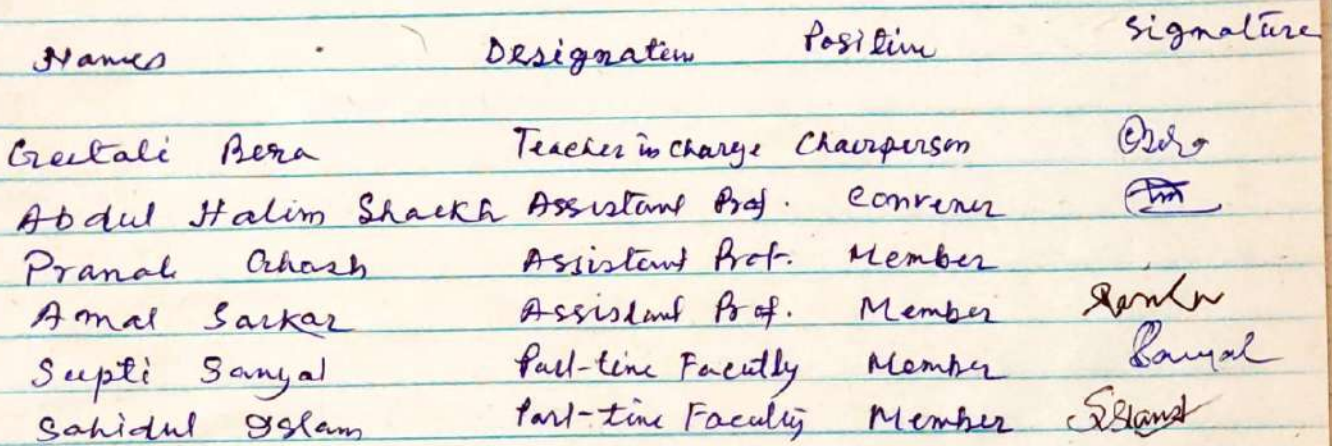 Names Designation Position Signature
Geetali Bera Teacher in charge Chairperson
Abdul Halim Shaikh Assistant Prof. Convener
Pranab Ghosh Assistant Prof. Member
Amal Sarkar Assistant Prof. Member Sarkar
Supti Sanyal Part-time Faculty Member Sanyal
Sahidul Islam Part-time Faculty Member SIslam